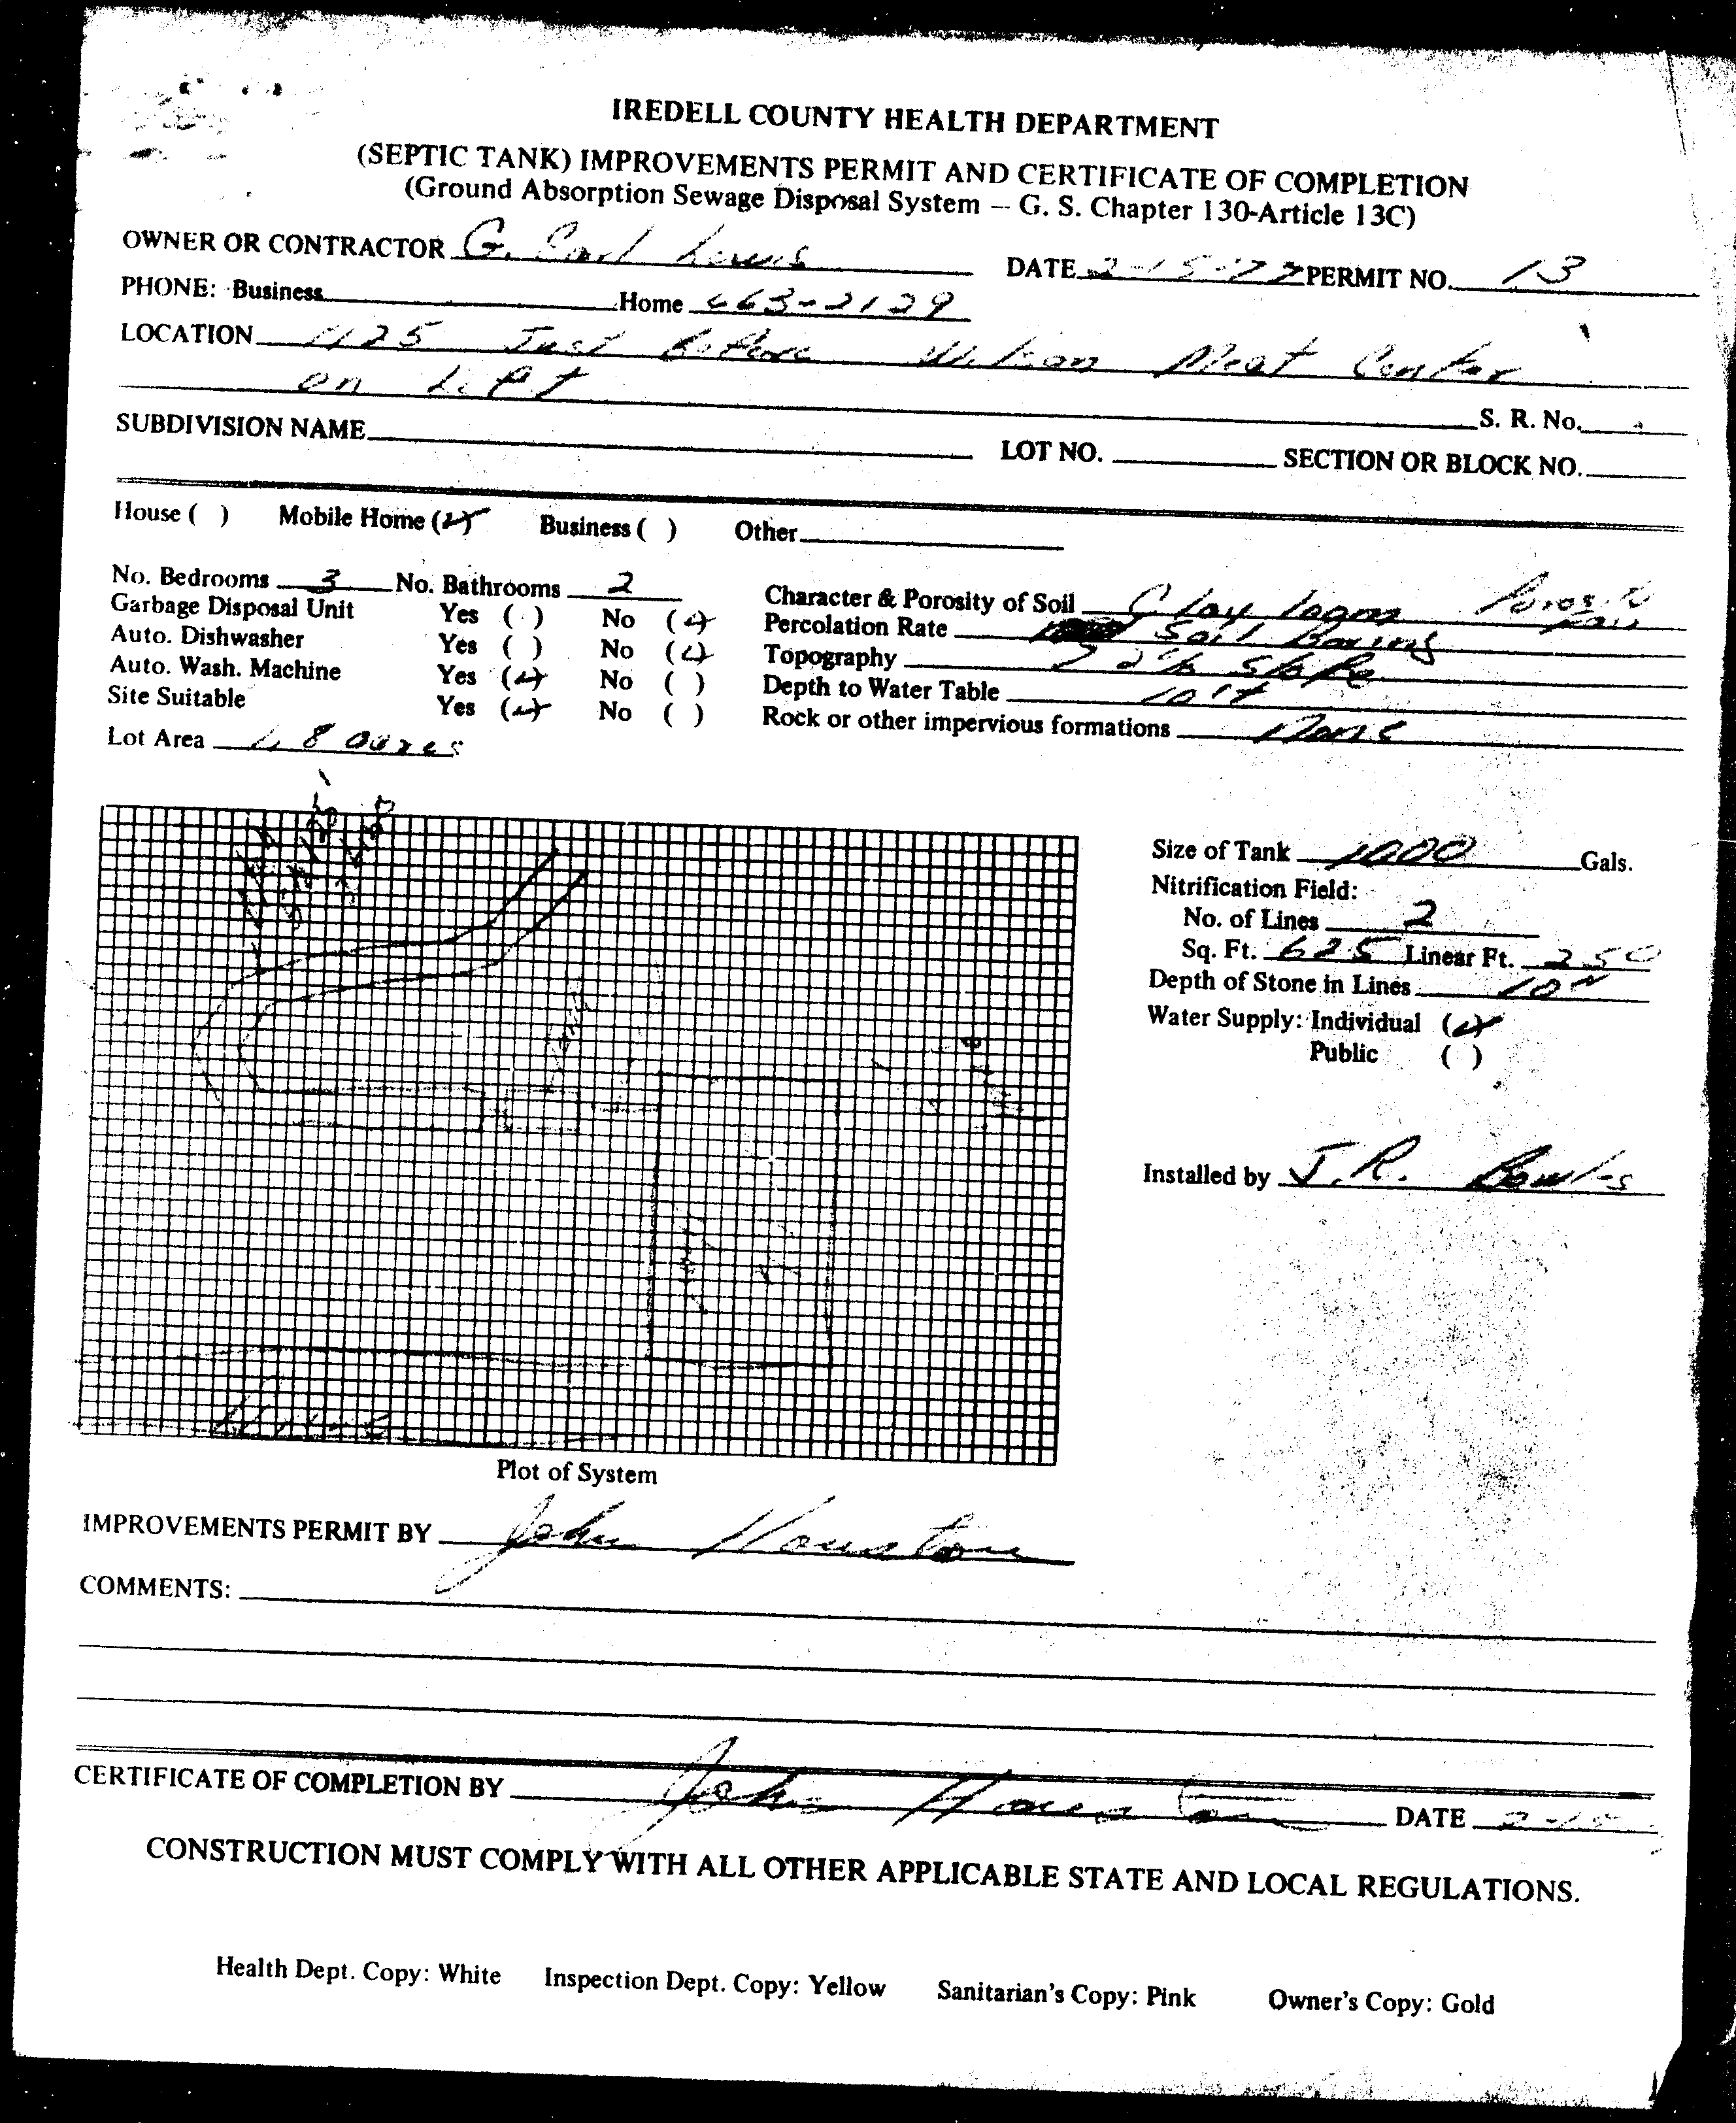 IREDELL COUNTY HEALTH DEPARTMENT
(SEPTIC TANK) IMPROVEMENTS PERMIT AND CERTIFICATE OF COMPLETION
(Ground Absorption Sewage Disposal System – G. S. Chapter 130-Article 13C)
OWNER OR CONTRACTOR G. Carl Lewis DATE 2-15-77 PERMIT NO. 13
PHONE: Business Home 663-2129
LOCATION 1125 Just Before Wilson Meat Center
on Left S. R. No.
SUBDIVISION NAME LOT NO. SECTION OR BLOCK NO.
House ( ) Mobile Home (✓) Business ( ) Other
No. Bedrooms 3 No. Bathrooms 2 Character & Porosity of Soil Clay loam Porosity
Garbage Disposal Unit Yes ( ) No (✓) Percolation Rate Soil Boring
Auto. Dishwasher Yes ( ) No (✓) Topography 2% Slope
Auto. Wash. Machine Yes (✓) No ( ) Depth to Water Table 10'+
Site Suitable Yes (✓) No ( ) Rock or other impervious formations None
Lot Area 1.8 acres
Size of Tank 1000 Gals.
Nitrification Field:
No. of Lines 2
Sq. Ft. 625 Linear Ft. 250
Depth of Stone in Lines 10"
Water Supply: Individual (✓)
Public ( )
Installed by J.R. Bowles
Plot of System
IMPROVEMENTS PERMIT BY John Houston
COMMENTS:
CERTIFICATE OF COMPLETION BY John Houston DATE 2-15
CONSTRUCTION MUST COMPLY WITH ALL OTHER APPLICABLE STATE AND LOCAL REGULATIONS.
Health Dept. Copy: White Inspection Dept. Copy: Yellow Sanitarian's Copy: Pink Owner's Copy: Gold